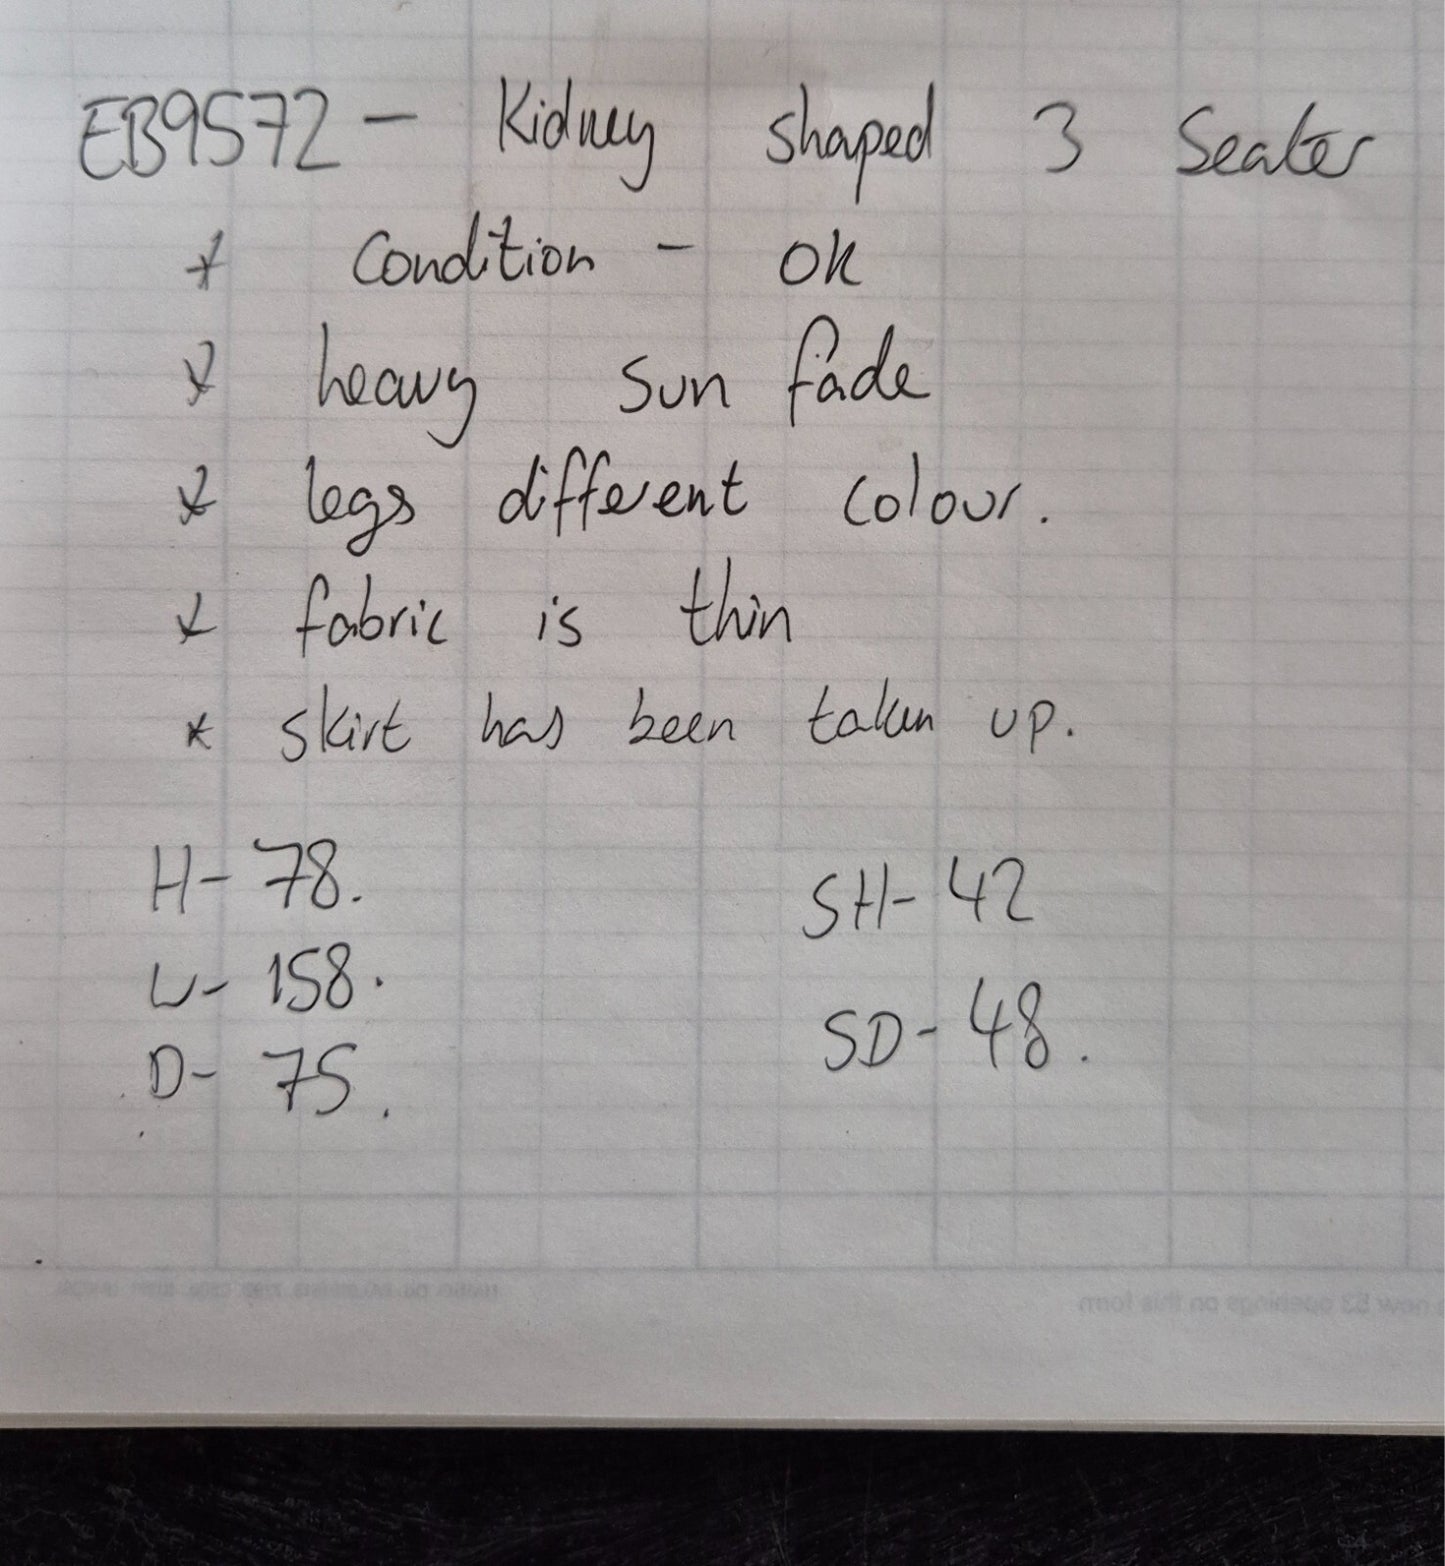 EB9572 - Kidney shaped 3 Seater
* Condition - OK
* heavy sun fade
* legs different colour.
* fabric is thin
* skirt has been taken up.
H- 78. SH- 42
W- 158. SD- 48.
D- 75.